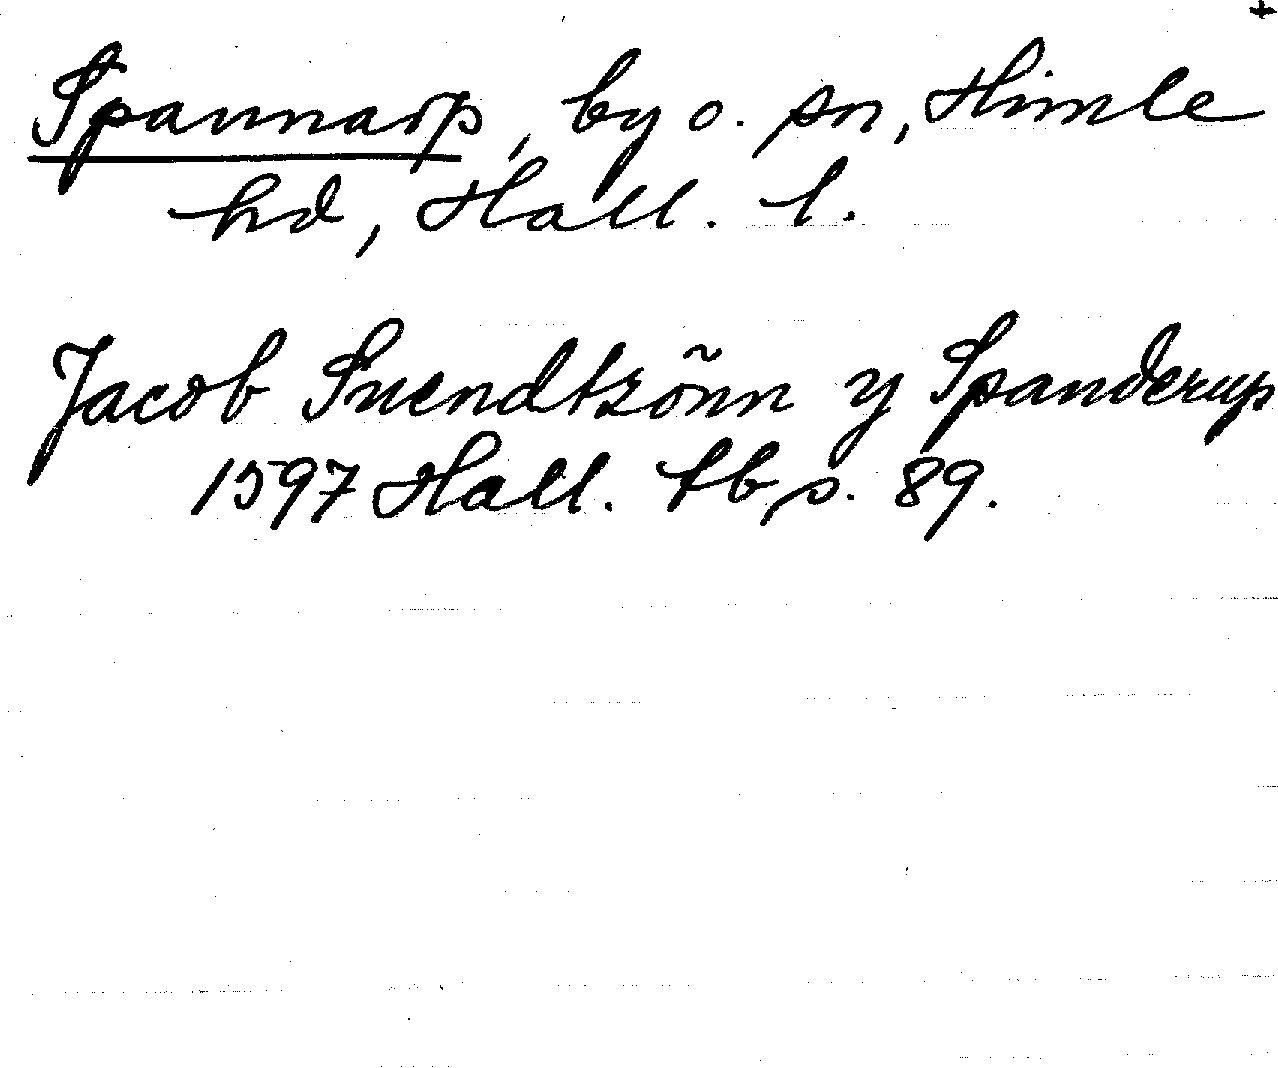 +
Spannarp, by o. sn, Himle
hd, Hall. l.
Jacob Suendtzõnn y Spanderup
1597 Hall. tb s. 89.